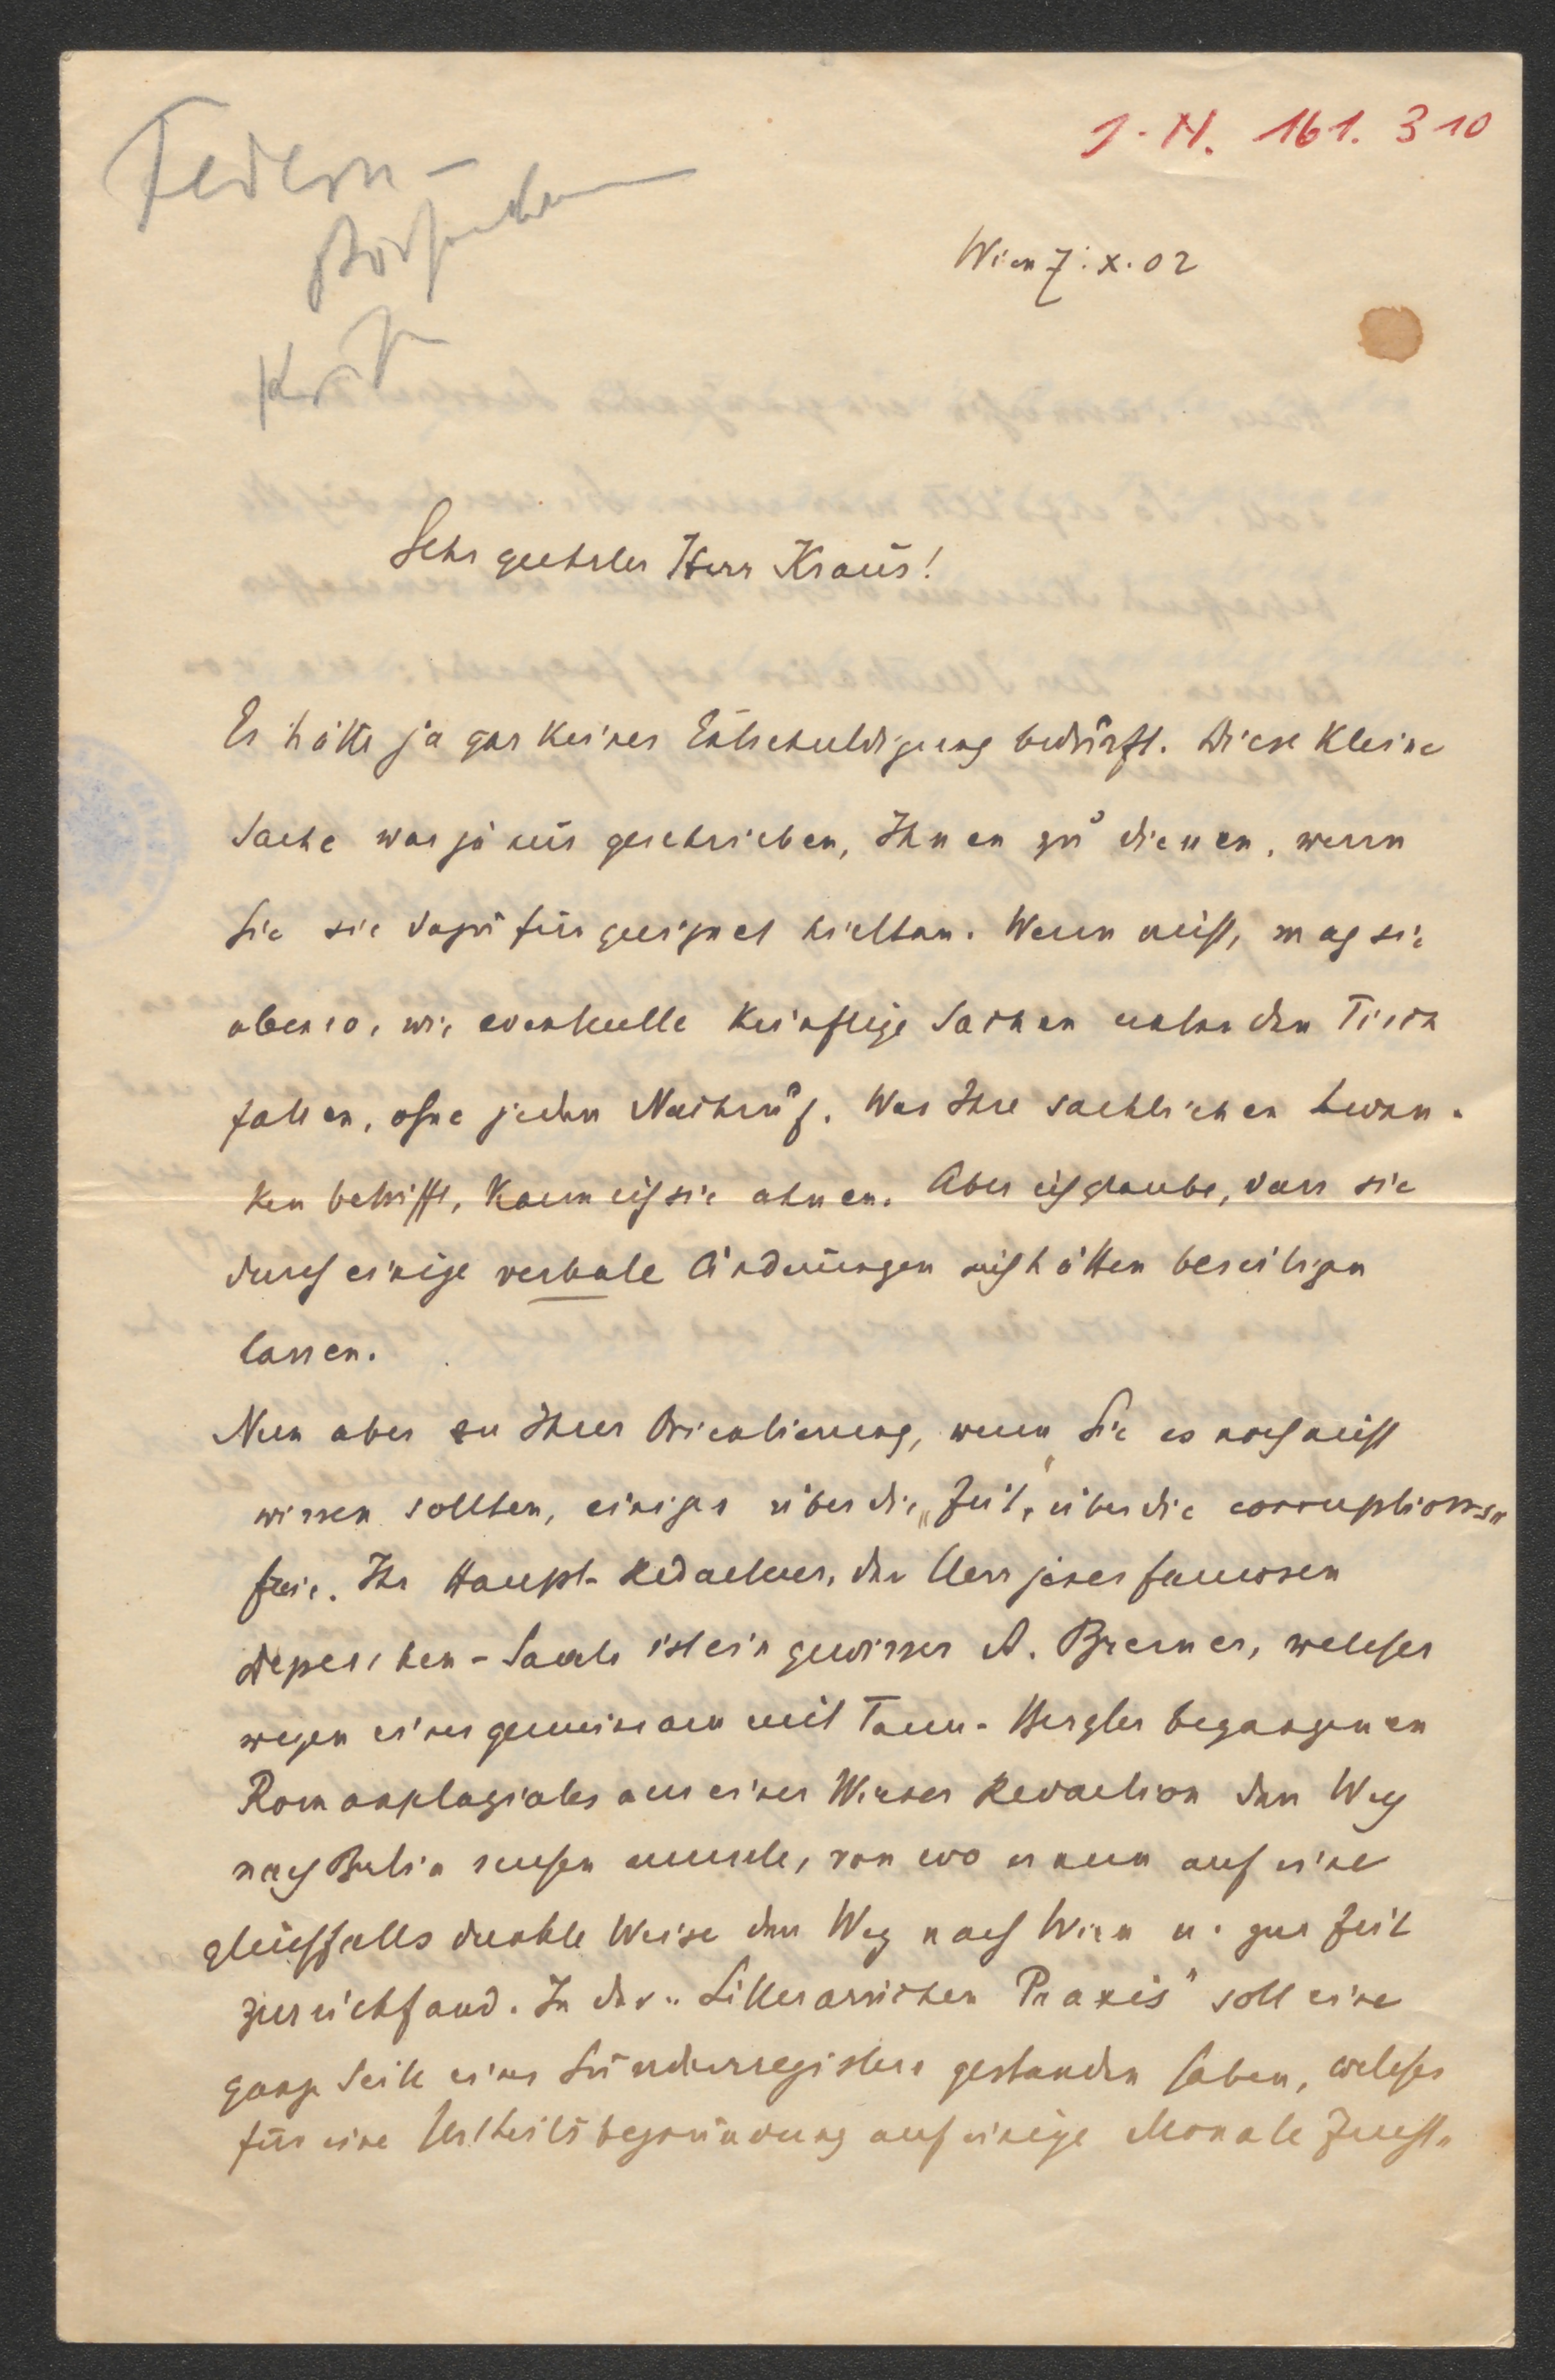 Federn -
J. N. 161. 310
Wien 7. X. 02
Sehr geehrter Herr Kraus!
Es hätte ja gar keiner Entschuldigung bedurft. Diese kleine
Sache war ja nur geschrieben, Ihnen zu dienen, wenn
Sie sie dazu für geeignet hielten. Wenn nicht, mag sie
ebenso, wie eventuelle künftige Sachen unter den Tisch
fallen, ohne jeden Nachruf. Was Ihre sachlichen Beden-
ken betrifft, kann ich sie ahnen. Aber ich glaube, dass sie
durch einige verbale Änderungen sich hätten beseitigen
lassen.
Nun aber zu Ihrer Orientierung, wenn Sie es noch nicht
wissen sollten, einiges über die „Zeit, über die corruptions-
freie. Ihr Haupt-Redacteur, der Herr jenes famosen
Depeschen-Saals ist ein gewisser A. Brenner, welcher
wegen eines gemeinsam mit Tann-Bergler begangenen
Romanplagiates aus einer Wiener Redaction den Weg
nach Berlin suchen musste, von wo er nun auf eine
gleichfalls dunkle Weise den Weg nach Wien u. zur Zeit
zurückfand. In der „Litterarischen Praxis" soll eine
ganze Seite eines Sündenregisters gestanden haben, welches
für eine Urtheilsbegründung auf einige Monate Zucht-